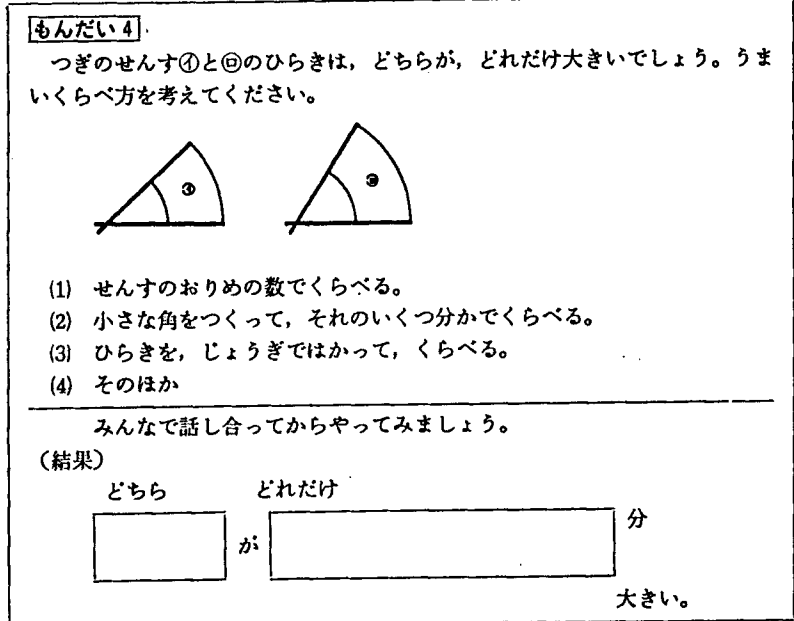 もんだい4
つぎのせんす㋑と㋺のひらきは，どちらが，どれだけ大きいでしょう。うま
いくらべ方を考えてください。
㋑ ㋺
(1) せんすのおりめの数でくらべる。
(2) 小さな角をつくって，それのいくつ分かでくらべる。
(3) ひらきを，じょうぎではかって，くらべる。
(4) そのほか
みんなで話し合ってからやってみましょう。
（結果）
どちら どれだけ
が 分
大きい。